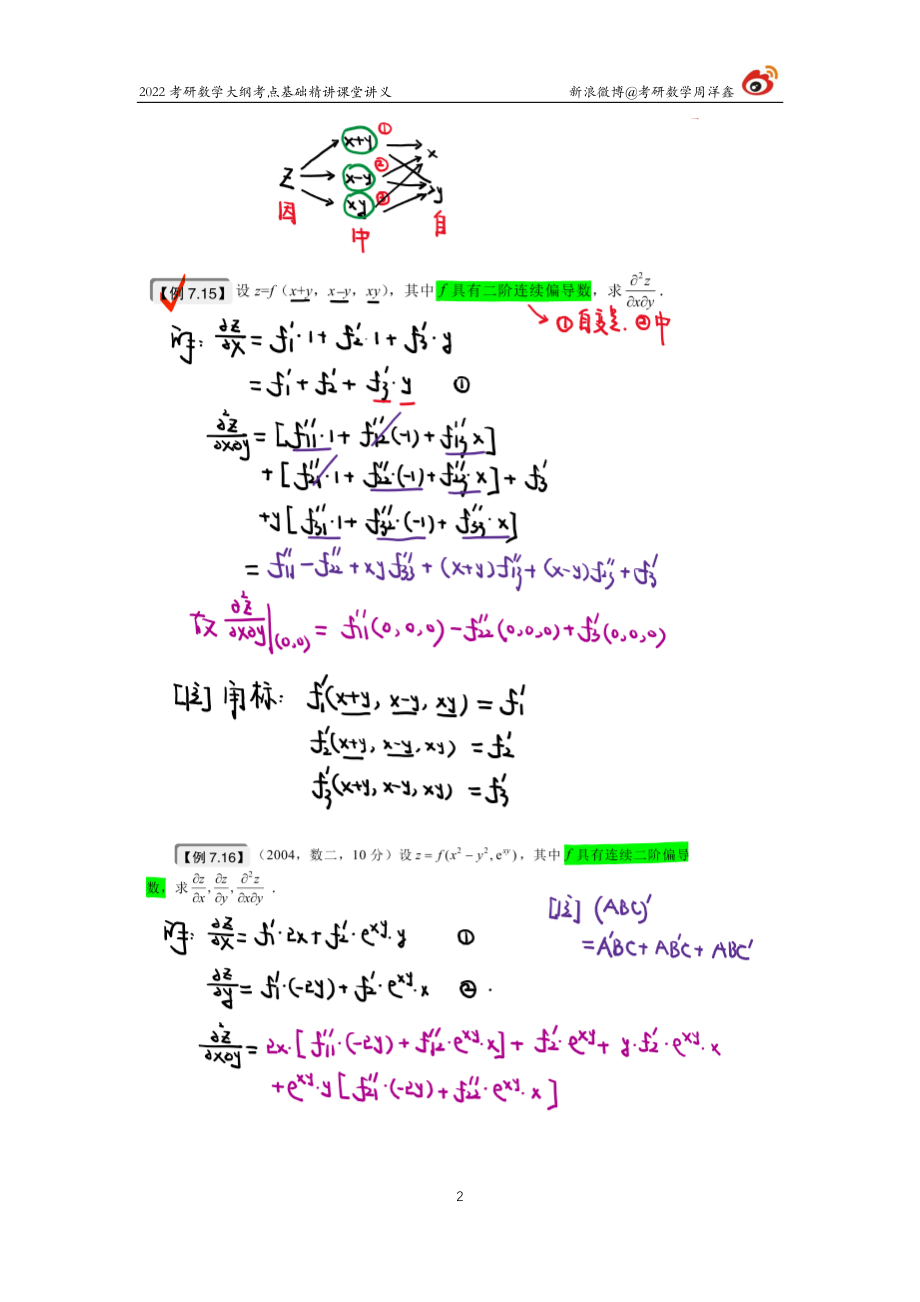 2022 考研数学大纲考点基础精讲课堂讲义 新浪微博@考研数学周洋鑫
x+y ①
x
z x-y ②
xy ③ y
因 中 自
【例 7.15】设 z=f（x+y，x–y，xy），其中 f 具有二阶连续偏导数，求 ∂²z/∂x∂y .
①自变是. ②中
解: ∂z/∂x = f₁'·1 + f₂'·1 + f₃'·y
= f₁' + f₂' + f₃'·y ①
∂²z/∂x∂y = [f₁₁''·1 + f₁₂''(-1) + f₁₃''x]
+ [f₂₁''·1 + f₂₂''·(-1) + f₂₃''·x] + f₃'
+y[f₃₁''·1 + f₃₂''·(-1) + f₃₃''·x]
= f₁₁'' - f₂₂'' + xyf₃₃'' + (x+y)f₁₃'' + (x-y)f₂₃'' + f₃'
故 ∂²z/∂x∂y|(0,0) = f₁₁''(0,0,0) - f₂₂''(0,0,0) + f₃'(0,0,0)
[注] 角标: f₁'(x+y, x-y, xy) = f₁'
f₂'(x+y, x-y, xy) = f₂'
f₃'(x+y, x-y, xy) = f₃'
【例 7.16】（2004，数二，10 分）设 z = f(x² − y², e^{xy})，其中 f 具有连续二阶偏导
数，求 ∂z/∂x, ∂z/∂y, ∂²z/∂x∂y .
[注] (ABC)'
= A'BC + AB'C + ABC'
解: ∂z/∂x = f₁'·2x + f₂'·e^{xy}·y ①
∂z/∂y = f₁'·(-2y) + f₂'·e^{xy}·x ② .
∂²z/∂x∂y = 2x·[f₁₁''·(-2y) + f₁₂''·e^{xy}·x] + f₂'·e^{xy} + y·f₂'·e^{xy}·x
+ e^{xy}·y[f₂₁''·(-2y) + f₂₂''·e^{xy}·x]
2